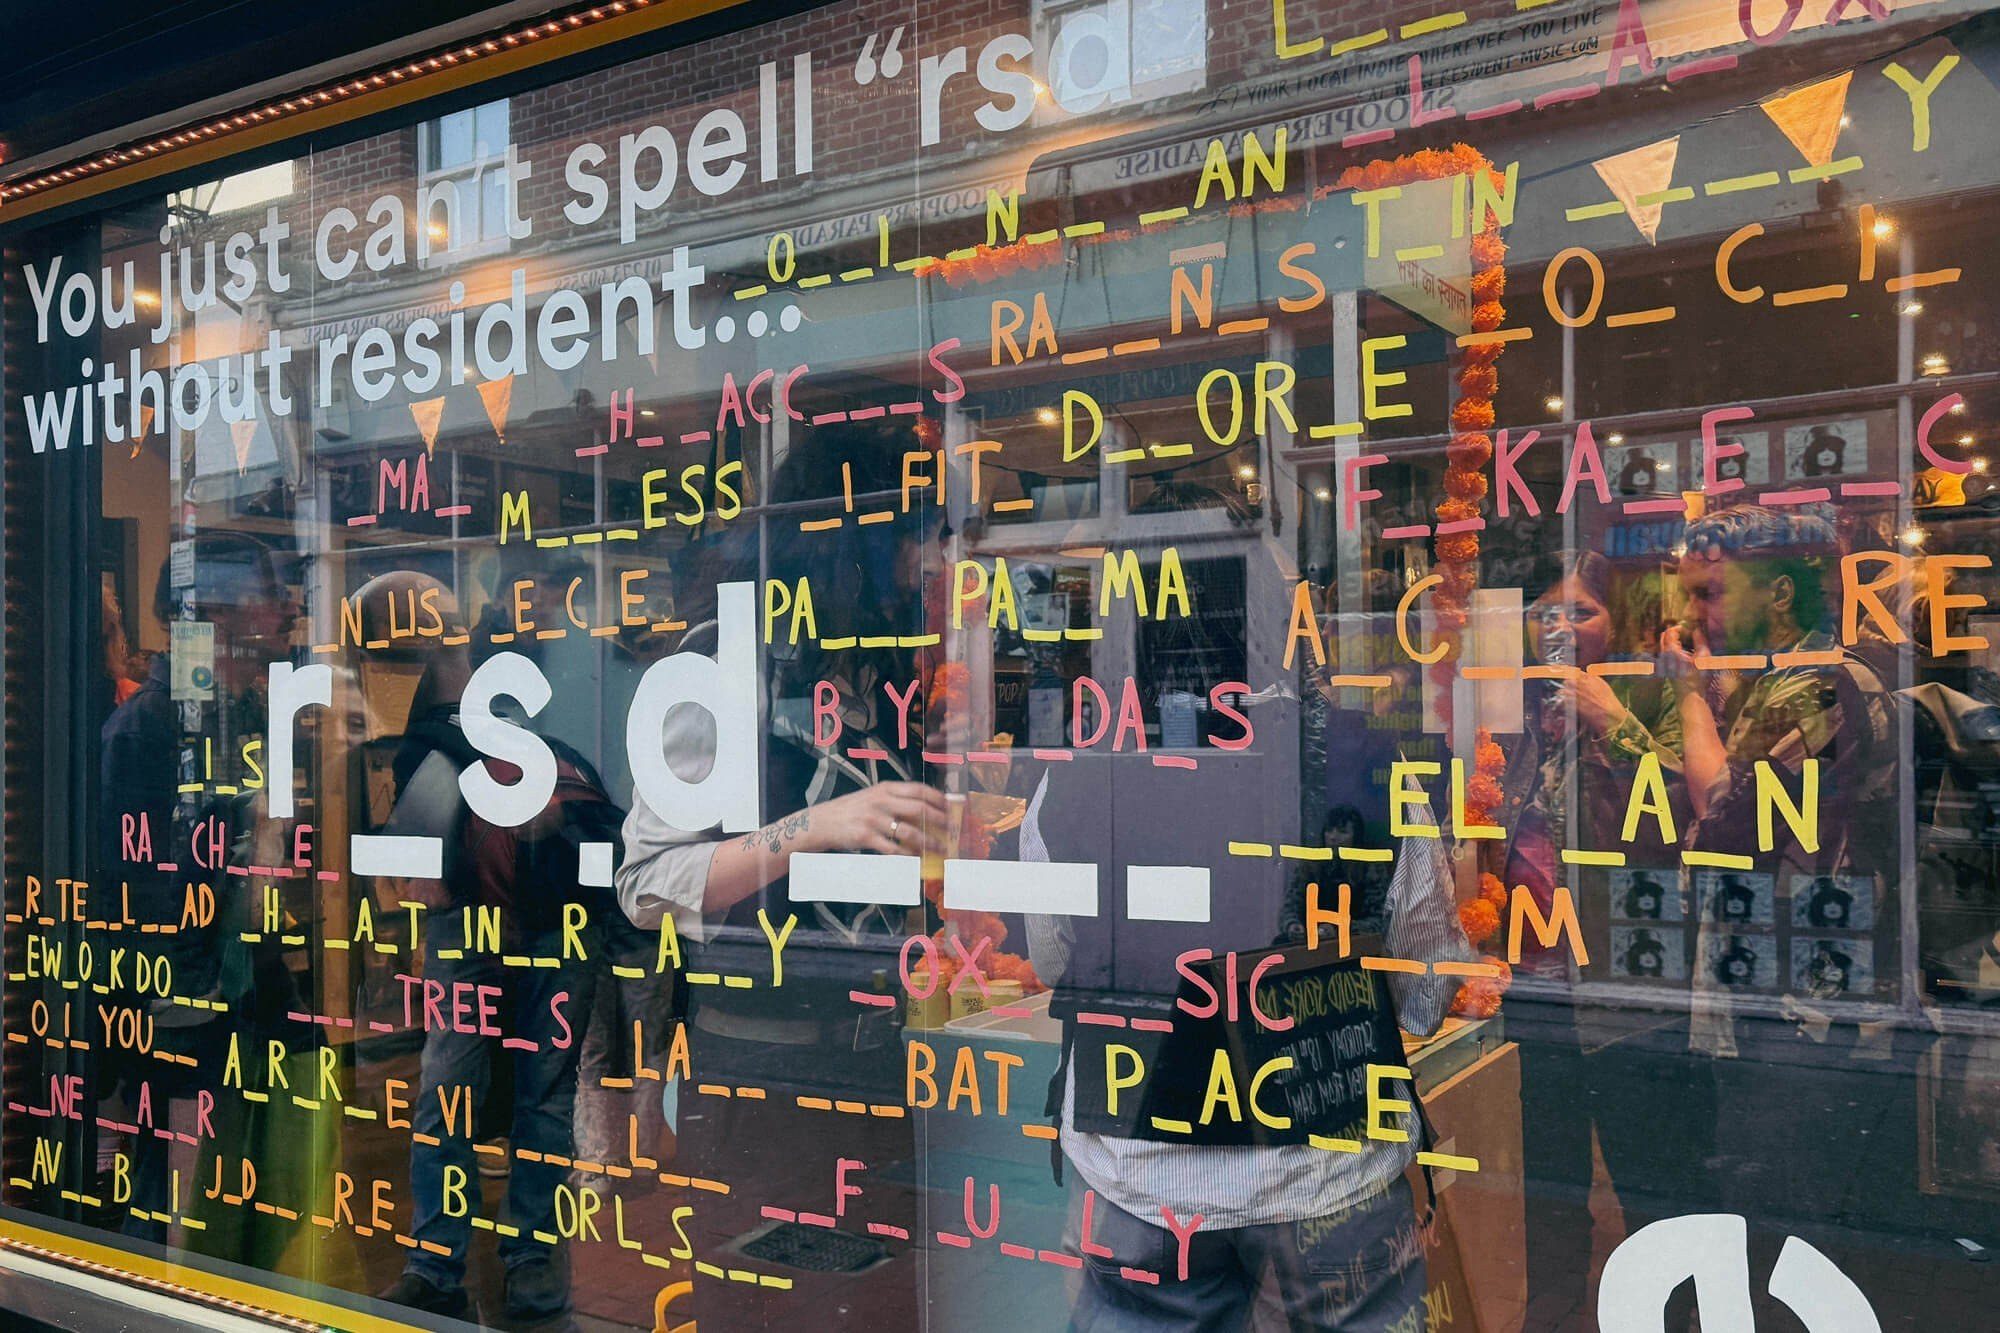 You just can't spell "rsd
without resident...
YOUR LOCAL INDIE WHEREVER YOU LIVE
RESIDENT-MUSIC.COM
SNOOPERS PARADISE
L_ _ _
_L_ _A_OX
_O_ _I_ N_ _ _AN
T_IN _ _ _ _Y
RA_ _ N_S _O_ C_I_
_H_ _ACC_ _ _S
D_ _OR_E
_MA_
M_ _ _ESS
_I_FIT_
F_ _KA_E_ _C
N_LIS_ _E_C_E_
PA_ _ _ PA_ _MA
A_C_ _ _ _RE
r_s.d_ _ _
B_Y_ _ _DA_S
_I_S
_ _ _EL_ _A_N
RA_CH_ _E_
_R_TE_ _L_ _AD
_H_ _A_T_IN_ _R_A_ _Y
H_ _M
_EW_O_K DO_ _ _
_OX_ _ _SIC
_ _ _ _TREE_S
_O_I_ YOU_ _
A_R_R_E_VI_ _ _ _L_ _
_LA_ _ _ _ _BAT_
P_AC_E_
_ _NE_ _A_ _R
_AV_ _B_I_
J_D_ _ _RE_
B_ _ _ORL_S_ _ _
_ _F_ _U_ _L_Y
RECORD STORE DAY
SATURDAY 18TH APRIL
OPEN FROM 8AM